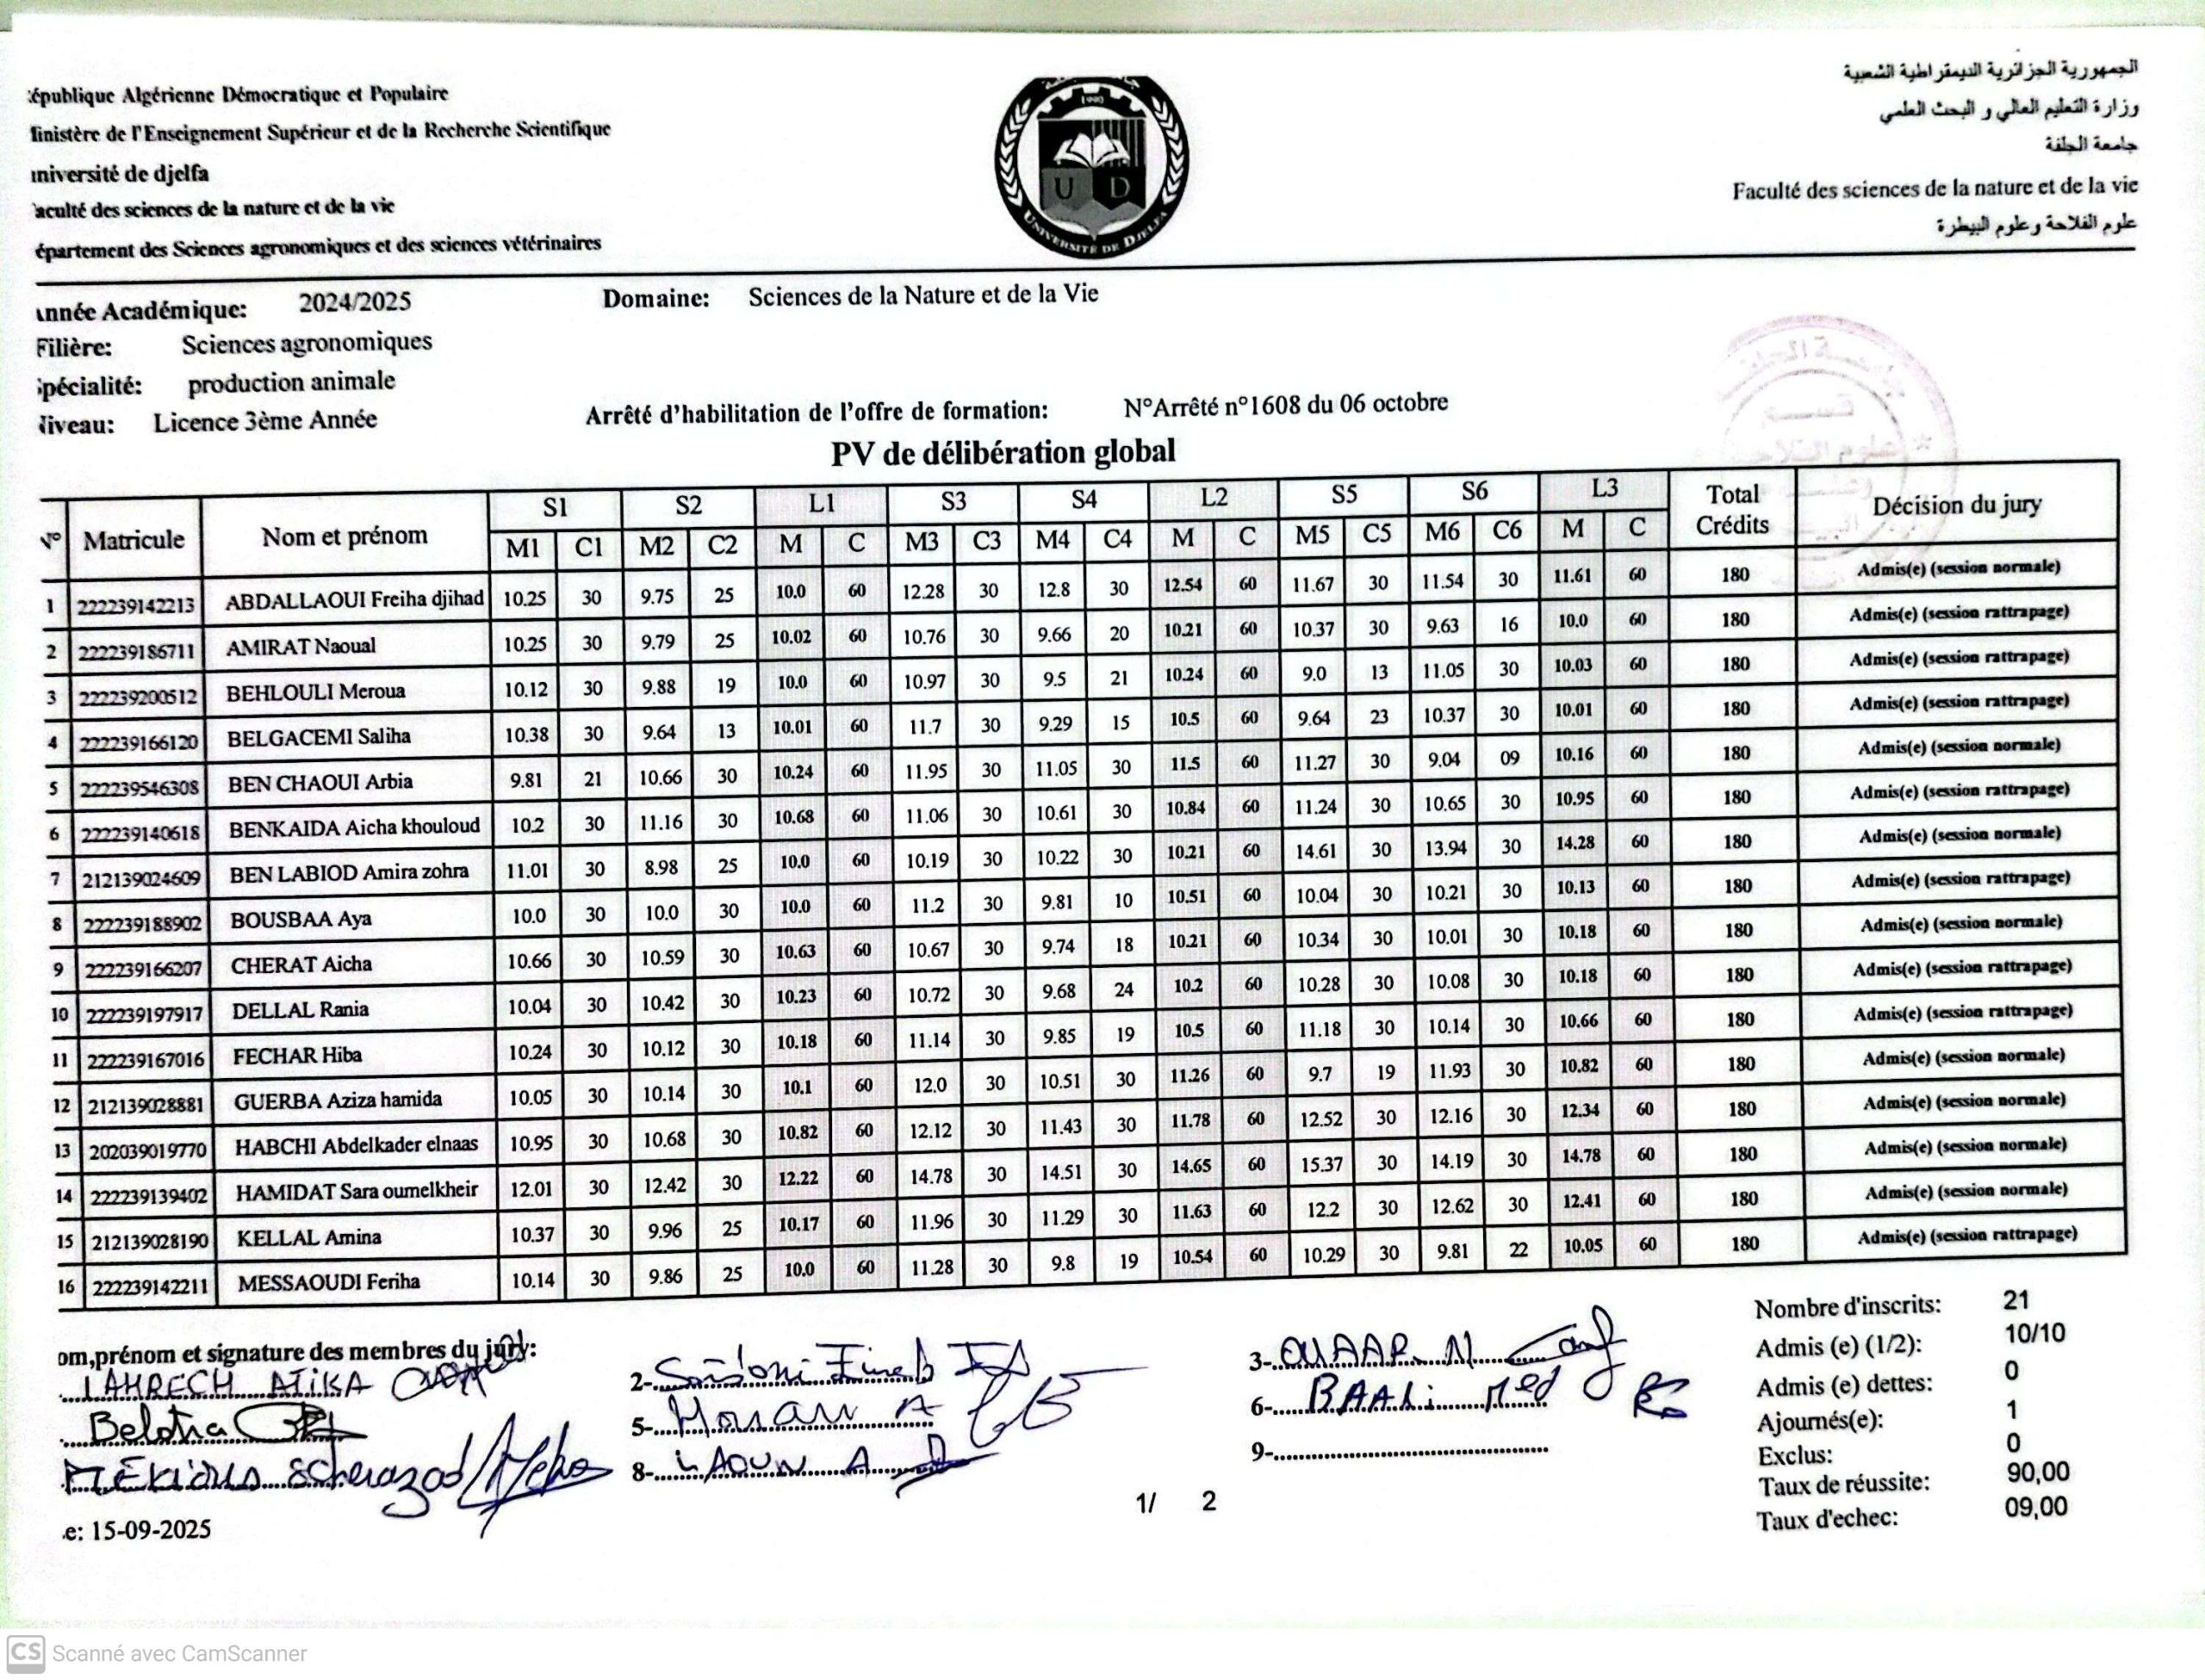 épublique Algérienne Démocratique et Populaire
الجمهورية الجزائرية الديمقراطية الشعبية
linistère de l'Enseignement Supérieur et de la Recherche Scientifique
وزارة التعليم العالي و البحث العلمي
niversité de djelfa
جامعة الجلفة
aculté des sciences de la nature et de la vie
Faculté des sciences de la nature et de la vie
épartement des Sciences agronomiques et des sciences vétérinaires
علوم الفلاحة وعلوم البيطرة
1990
U D
UNIVERSITÉ DE DJELFA
nnée Académique: 2024/2025 Domaine: Sciences de la Nature et de la Vie
Filière: Sciences agronomiques
pécialité: production animale
Niveau: Licence 3ème Année Arrêté d'habilitation de l'offre de formation: N°Arrêté n°1608 du 06 octobre
PV de délibération global
N° Matricule Nom et prénom S1 S2 L1 S3 S4 L2 S5 S6 L3 Total Crédits Décision du jury
M1 C1 M2 C2 M C M3 C3 M4 C4 M C M5 C5 M6 C6 M C
1 222239142213 ABDALLAOUI Freiha djihad 10.25 30 9.75 25 10.0 60 12.28 30 12.8 30 12.54 60 11.67 30 11.54 30 11.61 60 180 Admis(e) (session normale)
2 222239186711 AMIRAT Naoual 10.25 30 9.79 25 10.02 60 10.76 30 9.66 20 10.21 60 10.37 30 9.63 16 10.0 60 180 Admis(e) (session rattrapage)
3 222239200512 BEHLOULI Meroua 10.12 30 9.88 19 10.0 60 10.97 30 9.5 21 10.24 60 9.0 13 11.05 30 10.03 60 180 Admis(e) (session rattrapage)
4 222239166120 BELGACEMI Saliha 10.38 30 9.64 13 10.01 60 11.7 30 9.29 15 10.5 60 9.64 23 10.37 30 10.01 60 180 Admis(e) (session rattrapage)
5 222239546308 BEN CHAOUI Arbia 9.81 21 10.66 30 10.24 60 11.95 30 11.05 30 11.5 60 11.27 30 9.04 09 10.16 60 180 Admis(e) (session normale)
6 222239140618 BENKAIDA Aicha khouloud 10.2 30 11.16 30 10.68 60 11.06 30 10.61 30 10.84 60 11.24 30 10.65 30 10.95 60 180 Admis(e) (session rattrapage)
7 212139024609 BEN LABIOD Amira zohra 11.01 30 8.98 25 10.0 60 10.19 30 10.22 30 10.21 60 14.61 30 13.94 30 14.28 60 180 Admis(e) (session normale)
8 222239188902 BOUSBAA Aya 10.0 30 10.0 30 10.0 60 11.2 30 9.81 10 10.51 60 10.04 30 10.21 30 10.13 60 180 Admis(e) (session rattrapage)
9 222239166207 CHERAT Aicha 10.66 30 10.59 30 10.63 60 10.67 30 9.74 18 10.21 60 10.34 30 10.01 30 10.18 60 180 Admis(e) (session normale)
10 222239197917 DELLAL Rania 10.04 30 10.42 30 10.23 60 10.72 30 9.68 24 10.2 60 10.28 30 10.08 30 10.18 60 180 Admis(e) (session rattrapage)
11 222239167016 FECHAR Hiba 10.24 30 10.12 30 10.18 60 11.14 30 9.85 19 10.5 60 11.18 30 10.14 30 10.66 60 180 Admis(e) (session rattrapage)
12 212139028881 GUERBA Aziza hamida 10.05 30 10.14 30 10.1 60 12.0 30 10.51 30 11.26 60 9.7 19 11.93 30 10.82 60 180 Admis(e) (session normale)
13 202039019770 HABCHI Abdelkader elnaas 10.95 30 10.68 30 10.82 60 12.12 30 11.43 30 11.78 60 12.52 30 12.16 30 12.34 60 180 Admis(e) (session normale)
14 222239139402 HAMIDAT Sara oumelkheir 12.01 30 12.42 30 12.22 60 14.78 30 14.51 30 14.65 60 15.37 30 14.19 30 14.78 60 180 Admis(e) (session normale)
15 212139028190 KELLAL Amina 10.37 30 9.96 25 10.17 60 11.96 30 11.29 30 11.63 60 12.2 30 12.62 30 12.41 60 180 Admis(e) (session normale)
16 222239142211 MESSAOUDI Feriha 10.14 30 9.86 25 10.0 60 11.28 30 9.8 19 10.54 60 10.29 30 9.81 22 10.05 60 180 Admis(e) (session rattrapage)
om,prénom et signature des membres du jury:
LAHRECH ATIKA
2-
3- OUAAR N
5-
6- BAALI Med
8- LAOUN A
9-
e: 15-09-2025
1/ 2
Nombre d'inscrits: 21
Admis (e) (1/2): 10/10
Admis (e) dettes: 0
Ajournés(e): 1
Exclus: 0
Taux de réussite: 90,00
Taux d'echec: 09,00
CS Scanné avec CamScanner